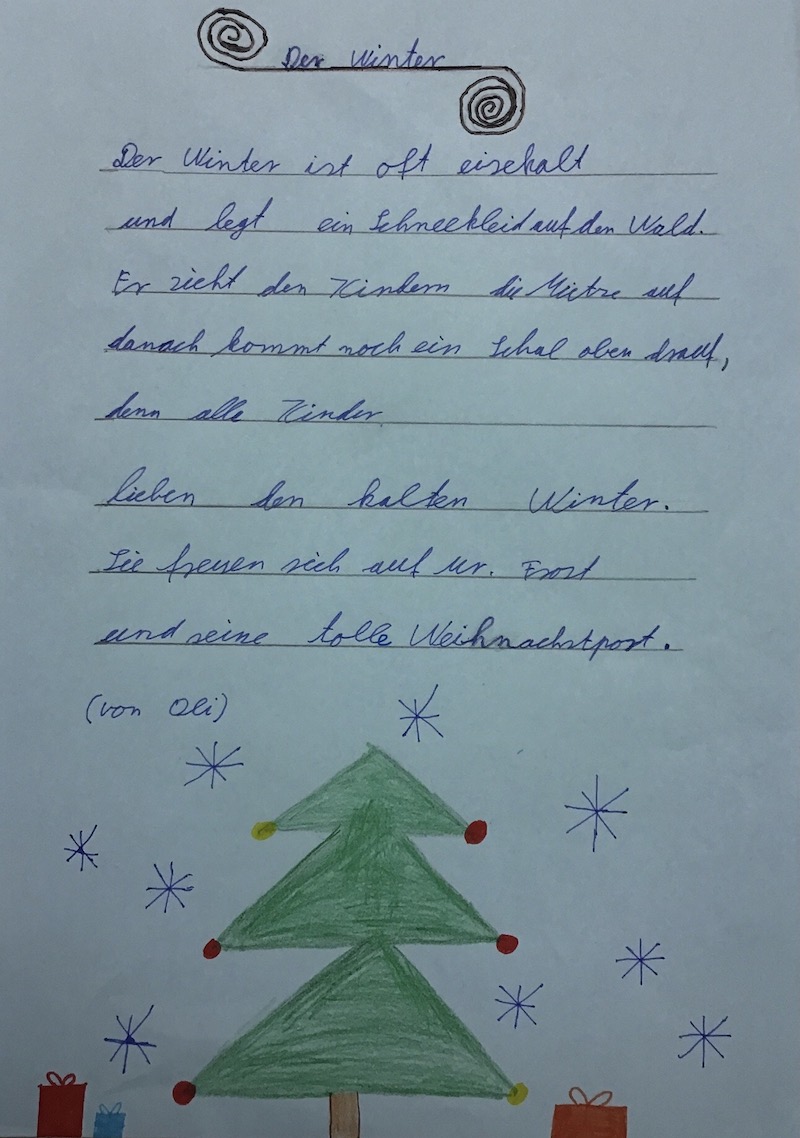 Der Winter
Der Winter ist oft eisekalt
und legt ein Schneekleid auf den Wald.
Er zieht den Kindern die Mütze auf
danach kommt noch ein Schal oben drauf,
denn alle Kinder
lieben den kalten Winter.
Sie freuen sich auf Mr. Frost
und seine tolle Weihnachstpost.
(von Oli)